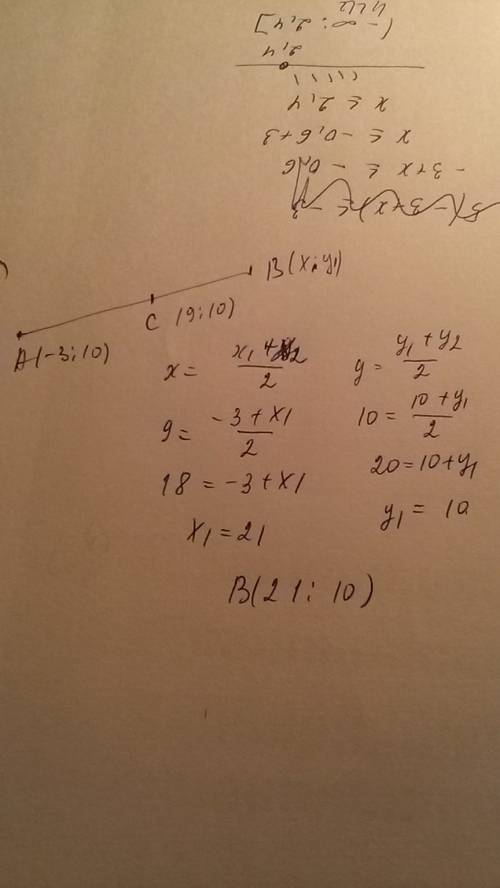 5(-3+x) ≤ -3
-3+x ≤ -0,6
x ≤ -0,6+3
x ≤ 2,4
2,4
(-∞; 2,4]
B(x1; y1)
C (9; 10)
A(-3; 10)
x = x1 + x2 / 2
y = y1 + y2 / 2
9 = -3 + x1 / 2
10 = 10 + y1 / 2
18 = -3 + x1
20 = 10 + y1
x1 = 21
y1 = 10
B(21; 10)